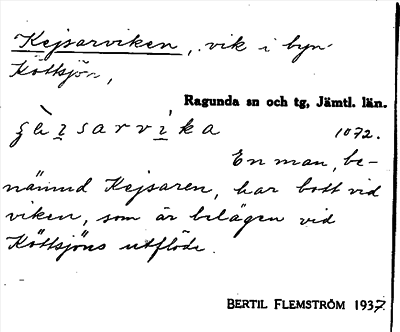 Kejsarviken, vik i byn
Köttsjön,
Ragunda sn och tg, Jämtl. län.
ʒàı̱sarvi̱ka
1072.
En man, be-
nämnd Kejsaren, har bott vid
viken, som är belägen vid
Köttsjöns utflöde.
BERTIL FLEMSTRÖM 1937.